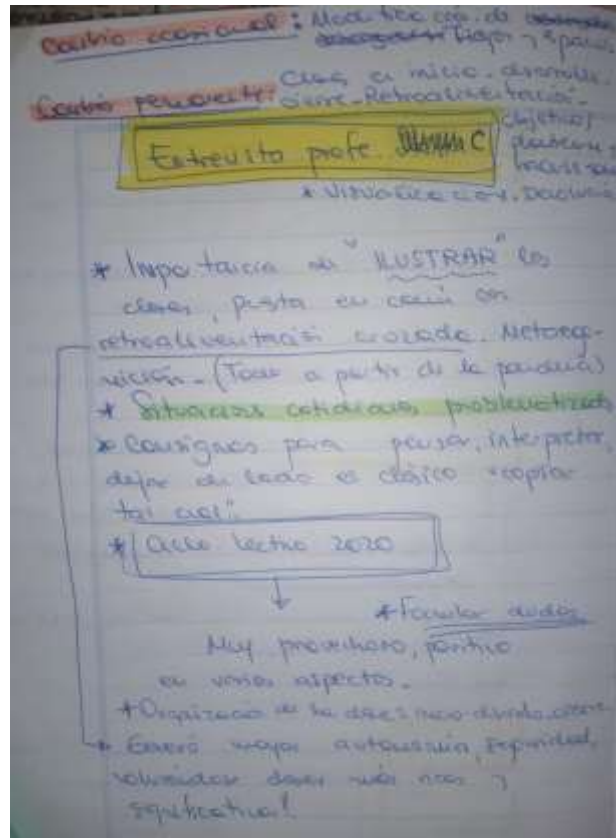 Cambio ocasional: Modificación de
tiempos y espacios
Cambio permanente: Clase en inicio-desarrollo
cierre-Retroalimentación-
objetivos
Entrevista profe. C
* Importancia de "ILUSTRAR" las
clases, puesta en común con
retroalimentación cruzada. Metacog-
nición-(Todo a partir de la pandemia)
* Situaciones cotidianas problematizadas
* Consignas para pensar, interpretar,
dejar de lado el clásico "copiar
tal cual".
* Ciclo lectivo 2020
* Formular dudas
Muy provechoso, positivo
en varios aspectos.
* Organización de la clase: inicio-desarrollo, cierre
* Generó mayor autonomía, seguridad,
volviéndose clases más ricas y
significativas!